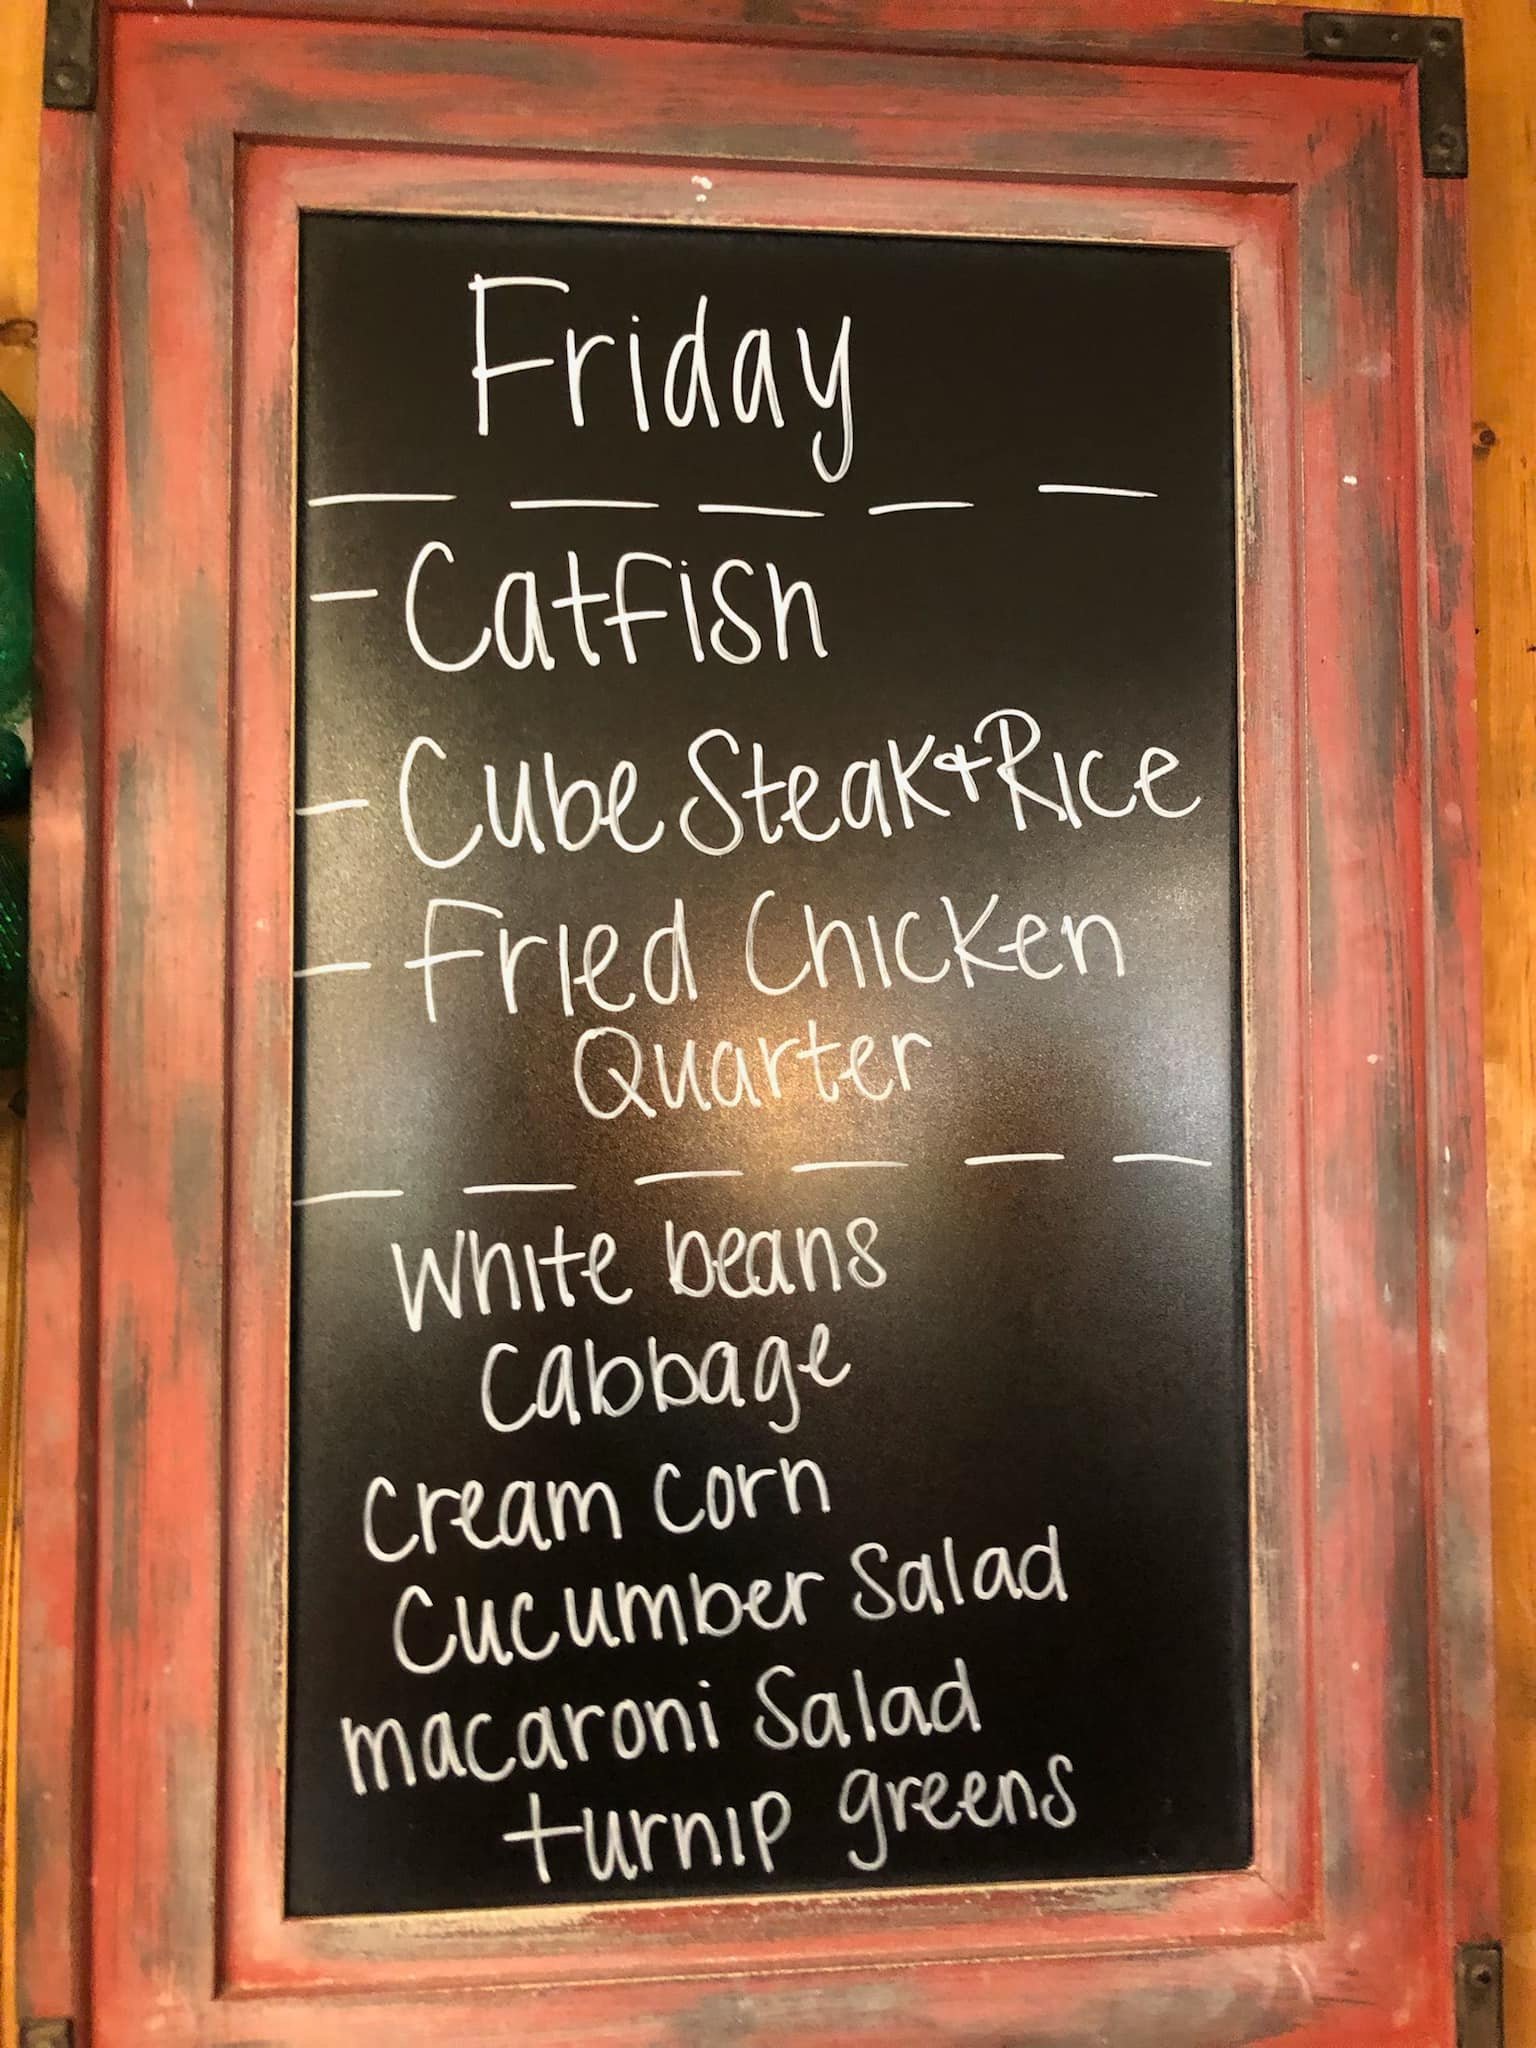 Friday
- Catfish
- Cube Steak & Rice
- Fried Chicken
Quarter
White beans
Cabbage
Cream Corn
Cucumber Salad
macaroni Salad
turnip greens